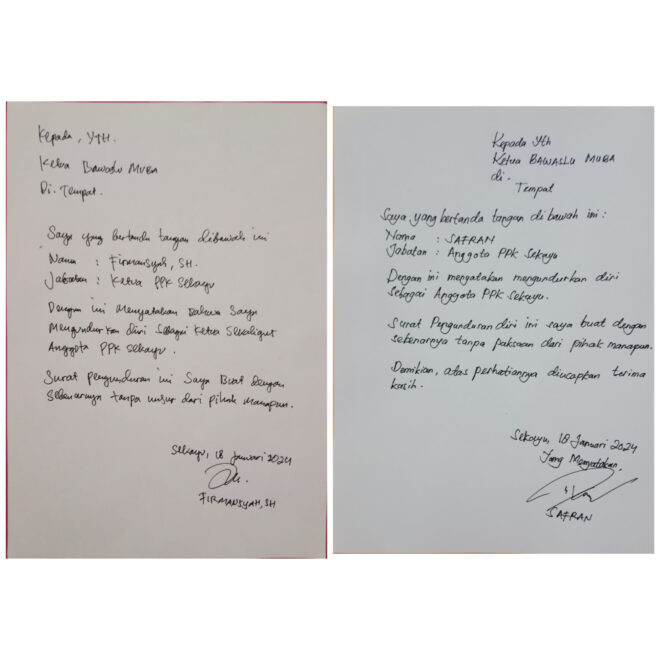 Kepada, YTH.
Ketua Bawaslu MUBA
Di. Tempat.
Saya yang bertanda tangan dibawah ini
Nama : Firmansyah, SH.
Jabatan : Ketua PPK Sekayu
Dengan ini Menyatakan Bahwa Saya
Mengundurkan diri sebagai Ketua Sekaligut
Anggota PPK Sekayu.
Surat pengunduran ini Saya Buat dengan
Sebenarnya tanpa unsur dari pihak manapun.
Sekayu, 18 Januari 2024
FIRMANSYAH, SH
Kepada Yth
Ketua BAWASLU MUBA
di -
Tempat
Saya yang bertanda tangan di bawah ini :
Nama : SAFRAN
Jabatan : Anggota PPK Sekayu
Dengan ini menyatakan mengundurkan diri
sebagai Anggota PPK Sekayu.
Surat Pengunduran diri ini saya buat dengan
sebenarnya tanpa paksaan dari pihak manapun.
Demikian, atas perhatiannya diucapkan terima
kasih.
Sekayu, 18 Januari 2024
Yang Menyatakan,
SAFRAN